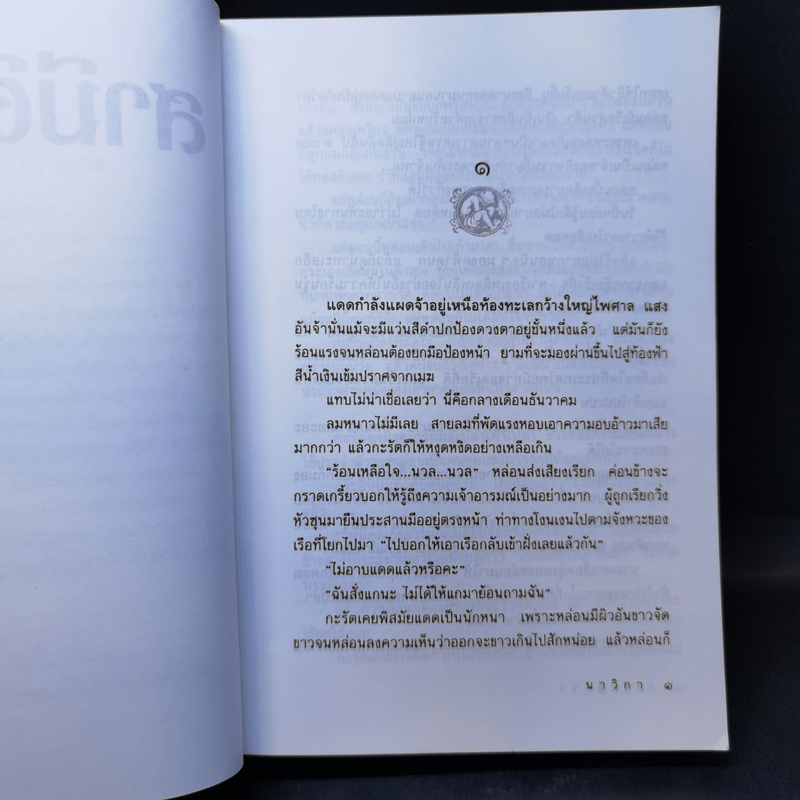 ๑
แดดกำลังแผดจ้าอยู่เหนือท้องทะเลกว้างใหญ่ไพศาล แสง
อันจ้านั่นแม้จะมีแว่นสีดำปกป้องดวงตาอยู่ชั้นหนึ่งแล้ว แต่มันก็ยัง
ร้อนแรงจนหล่อนต้องยกมือป้องหน้า ยามที่จะมองผ่านขึ้นไปสู่ท้องฟ้า
สีน้ำเงินเข้มปราศจากเมฆ
แทบไม่น่าเชื่อเลยว่า นี่คือกลางเดือนธันวาคม
ลมหนาวไม่มีเลย สายลมที่พัดแรงหอบเอาความอบอ้าวมาเสีย
มากกว่า แล้วกะรัตก็ให้หงุดหงิดอย่างเหลือเกิน
“ร้อนเหลือใจ...นวล...นวล” หล่อนส่งเสียงเรียก ค่อนข้างจะ
กราดเกรี้ยวบอกให้รู้ถึงความเจ้าอารมณ์เป็นอย่างมาก ผู้ถูกเรียกวิ่ง
หัวซุนมายืนประสานมืออยู่ตรงหน้า ท่าทางโงนเงนไปตามจังหวะของ
เรือที่โยกไปมา “ไปบอกให้เอาเรือกลับเข้าฝั่งเลยแล้วกัน”
“ไม่อาบแดดแล้วหรือคะ”
“ฉันสั่งแกนะ ไม่ได้ให้แกมาย้อนถามฉัน”
กะรัตเคยพิสมัยแดดเป็นนักหนา เพราะหล่อนมีผิวอันขาวจัด
ขาวจนหล่อนลงความเห็นว่าออกจะขาวเกินไปสักหน่อย แล้วหล่อนก็
นาวิกา ๑